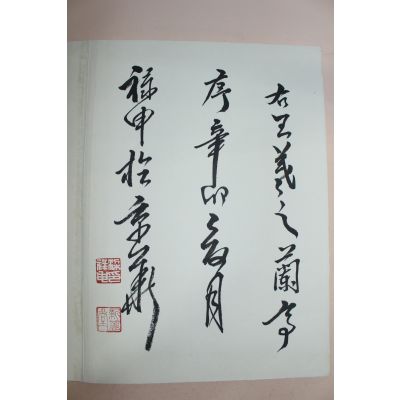 右王羲之蘭亭
序辛卯三月
祿申於京華